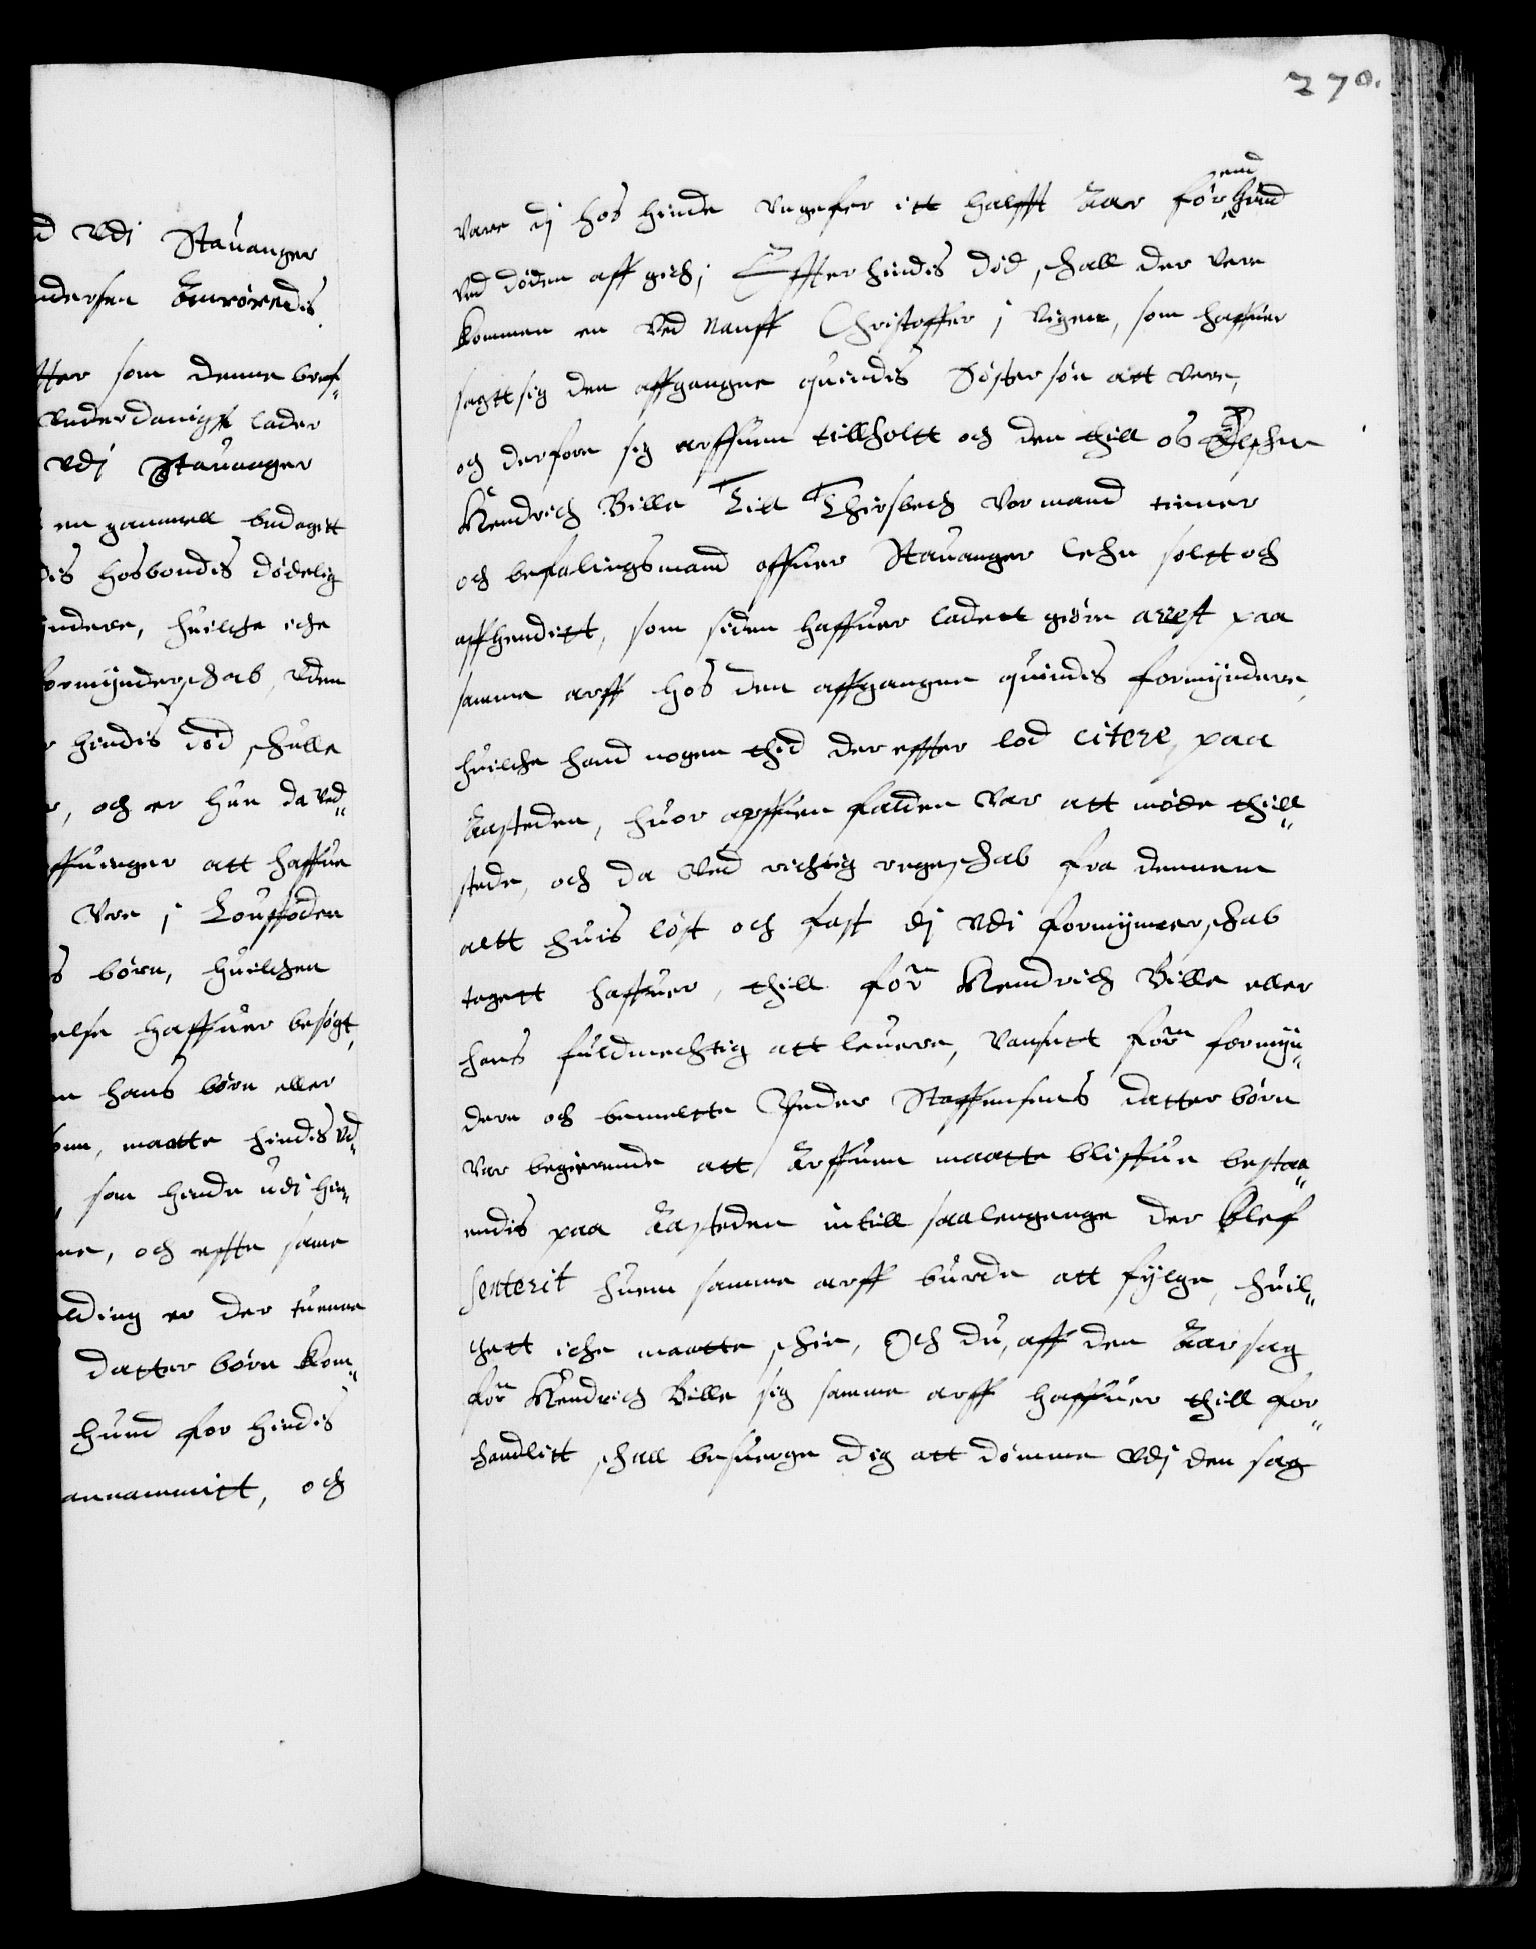 270.
d vdi Stauanger
ndersen Anrørendis
tter som denne bref-
vnderdanigst lader
vdj Stauanger
en gammell bedagitt
dis hosbondis dødelig
ndere, huilche iche
ormynderschab, vden
r hindis død schulle
r, och er hun da ved-
ffuinger att haffue
vere j Loufoden
s børn, huilchen
else haffuer besøgt,
n hans børn eller
onn, maatte hindis vd-
som hende udi hen-
ne, och effter same
lding er der tuenne
datter børn kom-
hund for hindis
annammitt, och
vare dj hos hinde vngefer itt halfft aar før end hund
ved døden aff gich; Effter hindis død, schall der vere
kommen en ved nauff Christoffer j Vigene, som haffuer
sagtt sig den affgangne quindis Søstersøn att vere,
och derfore sig arffuen tillholtt och den thill os Elschen
Hendrich Bille Till Thirsbech vor mand tiener
och befalingsmand offuer Stauanger lehn soltt och
affhenditt, som siden haffuer ladett giøre arrest paa
samme arff hos den affgangne quindis formyndere,
huilche hand nogen thid der effter lod citere, paa
Aasteden, huor arffuen falden var att møde thill-
stede, och da ved richtig regeschab fra dennem
altt huis løst och fast dj vdi formynderschab
tagett haffuer, thill for:ne Hendrich Bille eller
hans fuldmechtig att leuere, vansett for:ne formyn-
dere och bemeltte Peder Staffensens datter børn
var begierende att Arffuen maatte bliffue bestaa-
endis paa Aasteden intill saalengenge der blef
senterit huem samme arff burde att fylge, huil-
chett iche maatte schie, Och du, aff den Aarsag
for:ne Hendrich Bille sig samme arff haffuer thill for-
handlitt, schall besuerge dig att dømme vdj den sag